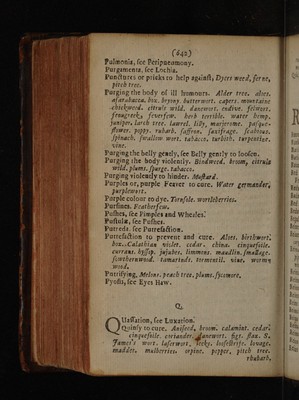 (642)
Pulmonia, see Peripneumony.
Purgaments, see Lochia.
Punctures or pricks to help against, Dyers weed, ferne,
pitch tree.
Purging the body of ill humours. Alder tree. aloes.
asarabacca. box. briony. butterwort. capers. mountaine
chickweed. citruls wild. danewort. endive. felwort.
fenugreek. feverfew. herb terrible. water hemp.
juniper. larch tree. laurel. lilly. marjerome.
flower. poppy. rubarb. saffron. saxifrage. seabious.
spinach. swallow wort. tabacco. turbith. turpentine.
vine.
Purging the belly gently, see Belly gently to loosen.
Purging the body violently. Bindweed. broom, citruls
wild. plums. spurge. tabacco.
Purging violently to hinder. Mustard.
Purples or, purple Feaver to cure. Water germander,
purplewort.
Purple colour to dye. Tornsole. wortleberries.
Pursines. Featherfew.
Pushes, see Pimples and Wheales.
Pustulæ, see Pushes.
Putrede. see Putrefaction.
Putrefaction to prevent and cure. Aloes. birthwort.
box. Calathian violet. cedar. china. cinquefoile.
currans. hyssop. jujubes. limmons. maudlin. smallage.
southernwood. tamarinds. tormentil. vine. wormwood.
Putrifying, Melons. peach tree. plums. sycomore.
Pyosis, see Eyes Haw.
Q.
Quassation, see Luxation.
Quinsy to cure. Aniseed, broom. calamint. cedar.
cinquefoile. coriander. danewort. figs. flax. S.
James's wort. laserwort. leeks. loosestrife. lovage.
madder. mulberries. orpine. pepper, pitch tree.
rhubarb,